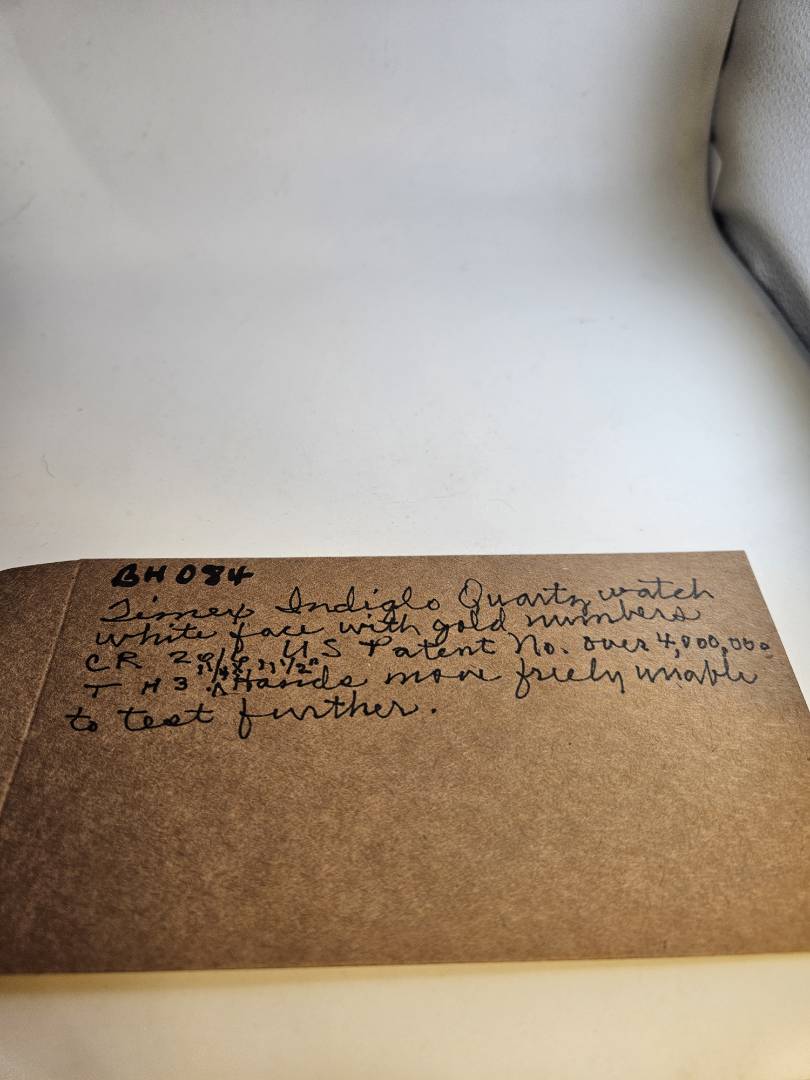 BH 084
Timex Indiglo Quartz watch
white face with gold numbers
CR 2 U S Patent No. over 4,000,000
1/2"
T H 3 ^ Hands move freely unable
to test further.